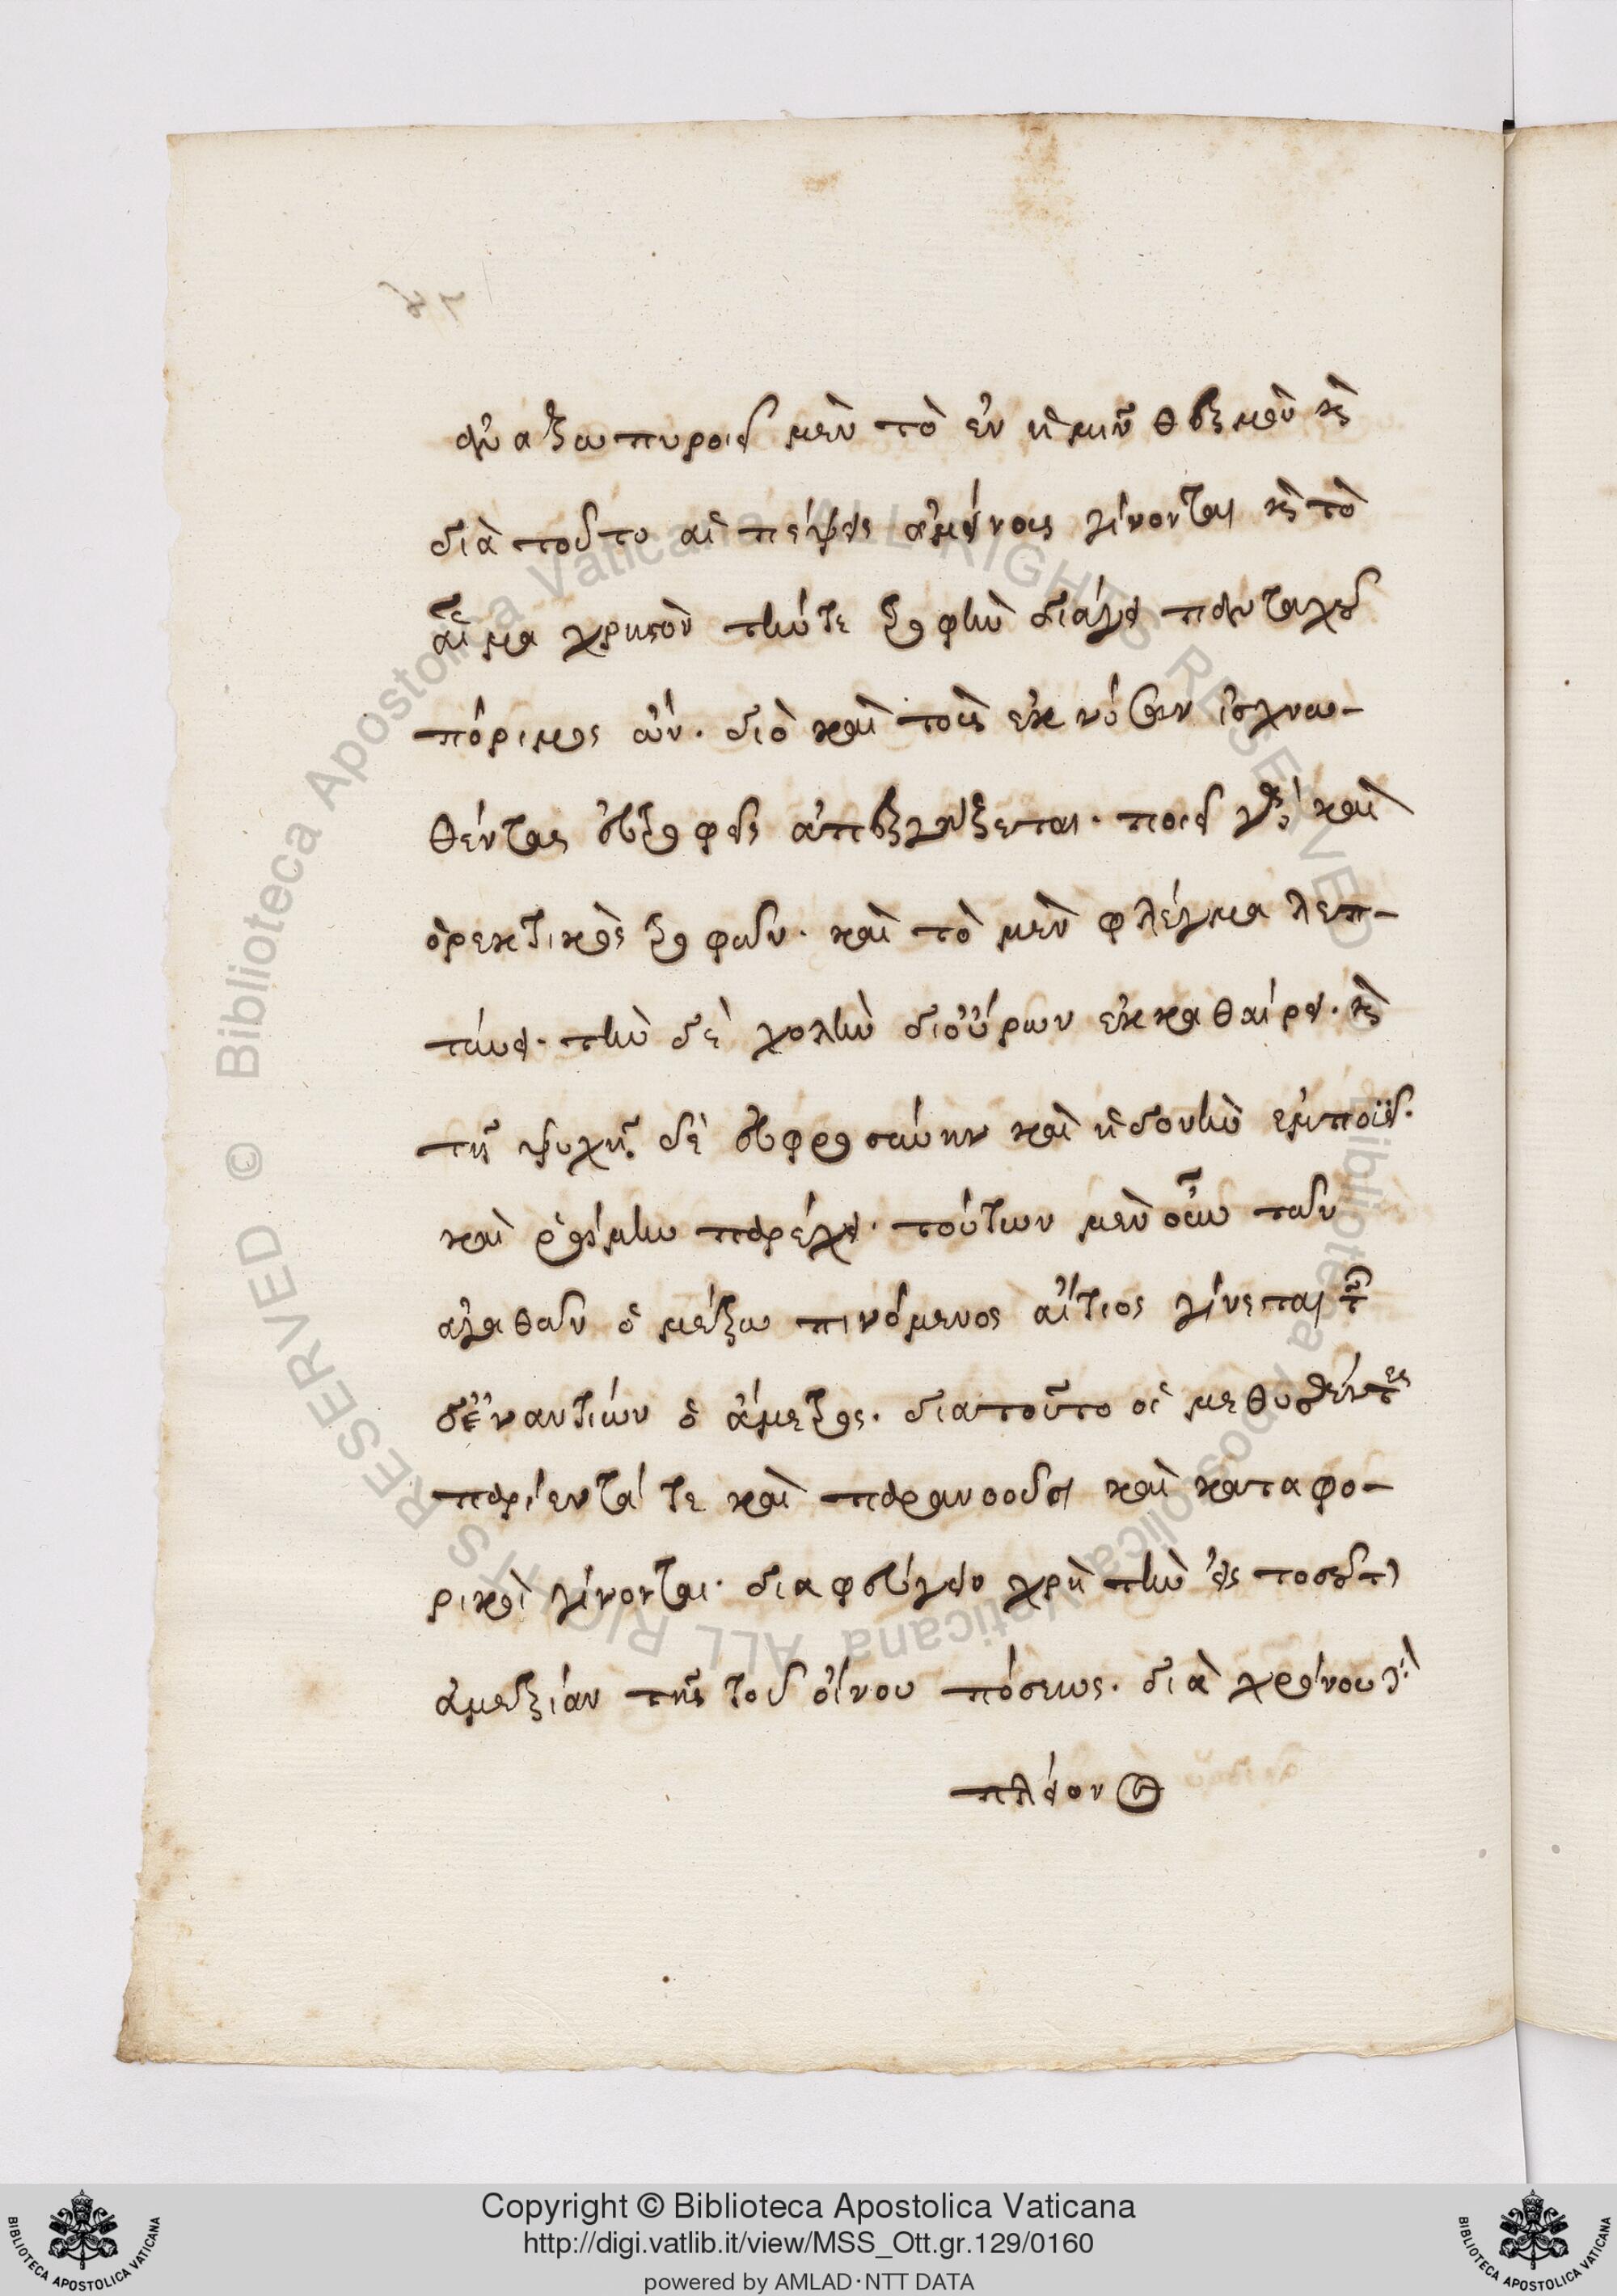 ἀναζωπυροῖ μὲν τὸ ἐν ἡμῖν θερμὸν κ̀
διὰ τοῦτο αἱ πέψεις ἀμείνους γίνονται κ̀ τὸ
αἷμα χρηστὸν τήν τε τροφὴν διάγει πανταχοῦ
πόριμος ὤν. διὸ καὶ τοὺς ἐκ νόσων ἰσχνω-
θέντας εὐτροφεῖς ἀπεργάζεται. ποιεῖ γὰρ καὶ
ὀρεκτικοὺς τροφῶν. καὶ τὸ μὲν φλέγμα λεπ-
τύνει. τὴν δὲ χολὴν δι οὔρων ἐκκαθαίρει. κ̀
τῇ ψυχῇ δὲ εὐφροσύνην καὶ ἡδονὴν ἐμποιεῖ.
καὶ ῥώμην παρέχει. τούτων μὲν οὖν τῶν
ἀγαθῶν ὁ μέτρω πινόμενος αἴτιος γίνεται τῶν
δ' ἐναντίων ὁ ἄμετρος. διατοῦτο οἱ μεθυσθέντες
παρίενταί τε καὶ παρανοοῦσι καὶ καταφο-
ρικοὶ γίνονται. διαφεύγειν χρὴ τὴν εἰς τοσοῦτον
ἀμετρίαν τῆς τοῦ οἴνου πόσεως. διὰ χρόνου δὲ
πλείον
Copyright © Biblioteca Apostolica Vaticana
http://digi.vatlib.it/view/MSS_Ott.gr.129/0160
powered by AMLAD·NTT DATA
BIBLIOTECA APOSTOLICA VATICANA
BIBLIOTECA APOSTOLICA VATICANA
© Biblioteca Apostolica Vaticana ALL RIGHTS RESERVED
© Biblioteca Apostolica Vaticana ALL RIGHTS RESERVED